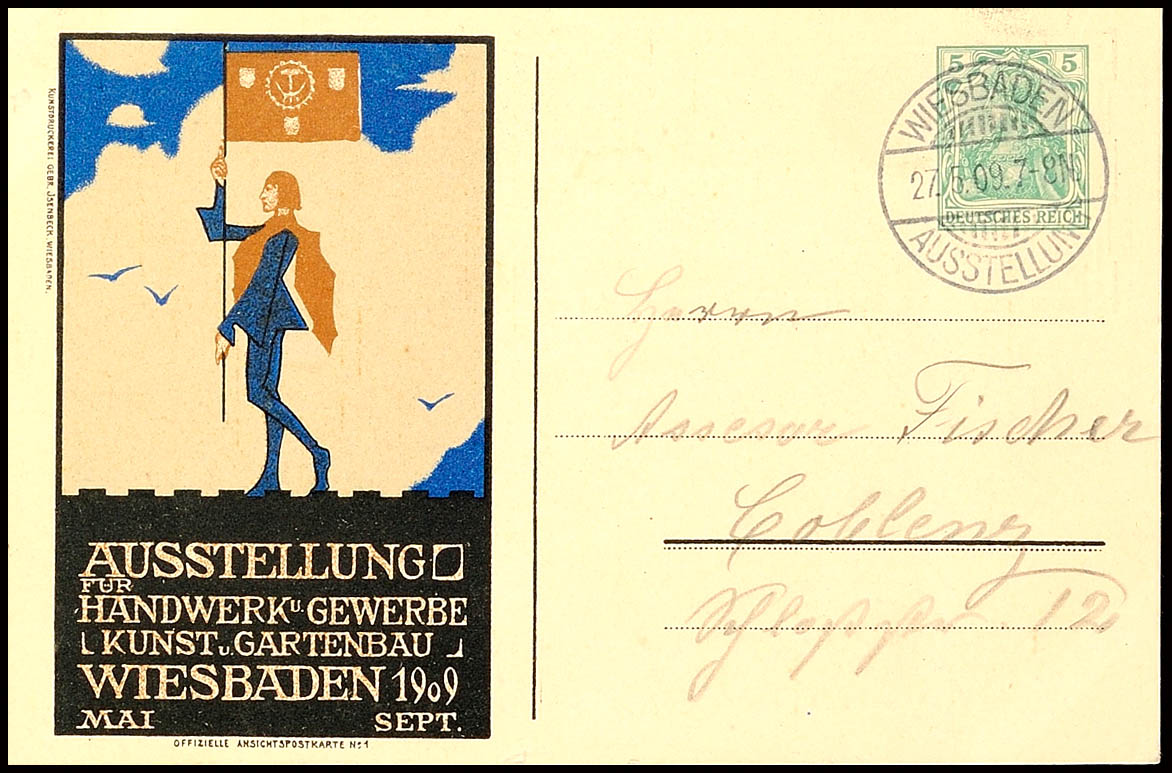 KUNSTDRUCKEREI GEBR. ISENBECK WIESBADEN.
AUSSTELLUNG
FÜR
HANDWERK U. GEWERBE
KUNST U. GARTENBAU
WIESBADEN 1909
MAI SEPT.
OFFIZIELLE ANSICHTSPOSTKARTE No 1
5 5
DEUTSCHES REICH
WIESBADEN
27.5.09.7-8N
AUSSTELLUNG
Herrn
Assesor Fischer
Coblenz
12